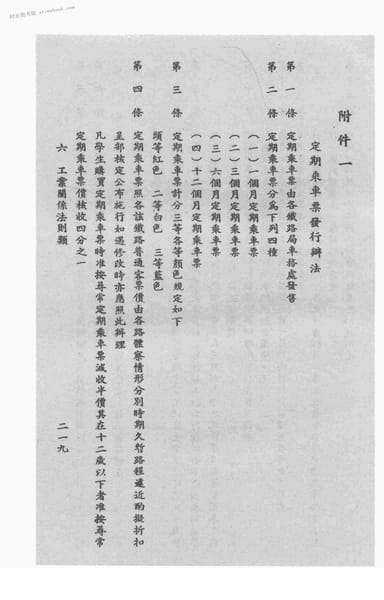 附件一
定期乘車票發行辦法
第一條 定期乘車票由各鐵路局車務處發售
第二條 定期乘車票分爲下列四種
(一)一個月定期乘車票
(二)三個月定期乘車票
(三)六個月定期乘車票
(四)十二個月定期乘車票
第三條 定期乘車票計分三等各等顏色規定如下
頭等紅色 二等白色 三等藍色
第四條 定期乘車票照各該鐵路普通客票價由各路體察情形分別時期久暫路程遠近酌擬折扣
呈部核定公布施行如遇修改時亦應照此辦理
凡學生購買定期乘車票時准按尋常定期乘車票減收半價其在十二歲以下者准按尋常
定期乘車票價核收四分之一
六 工業關係法則類
二一九